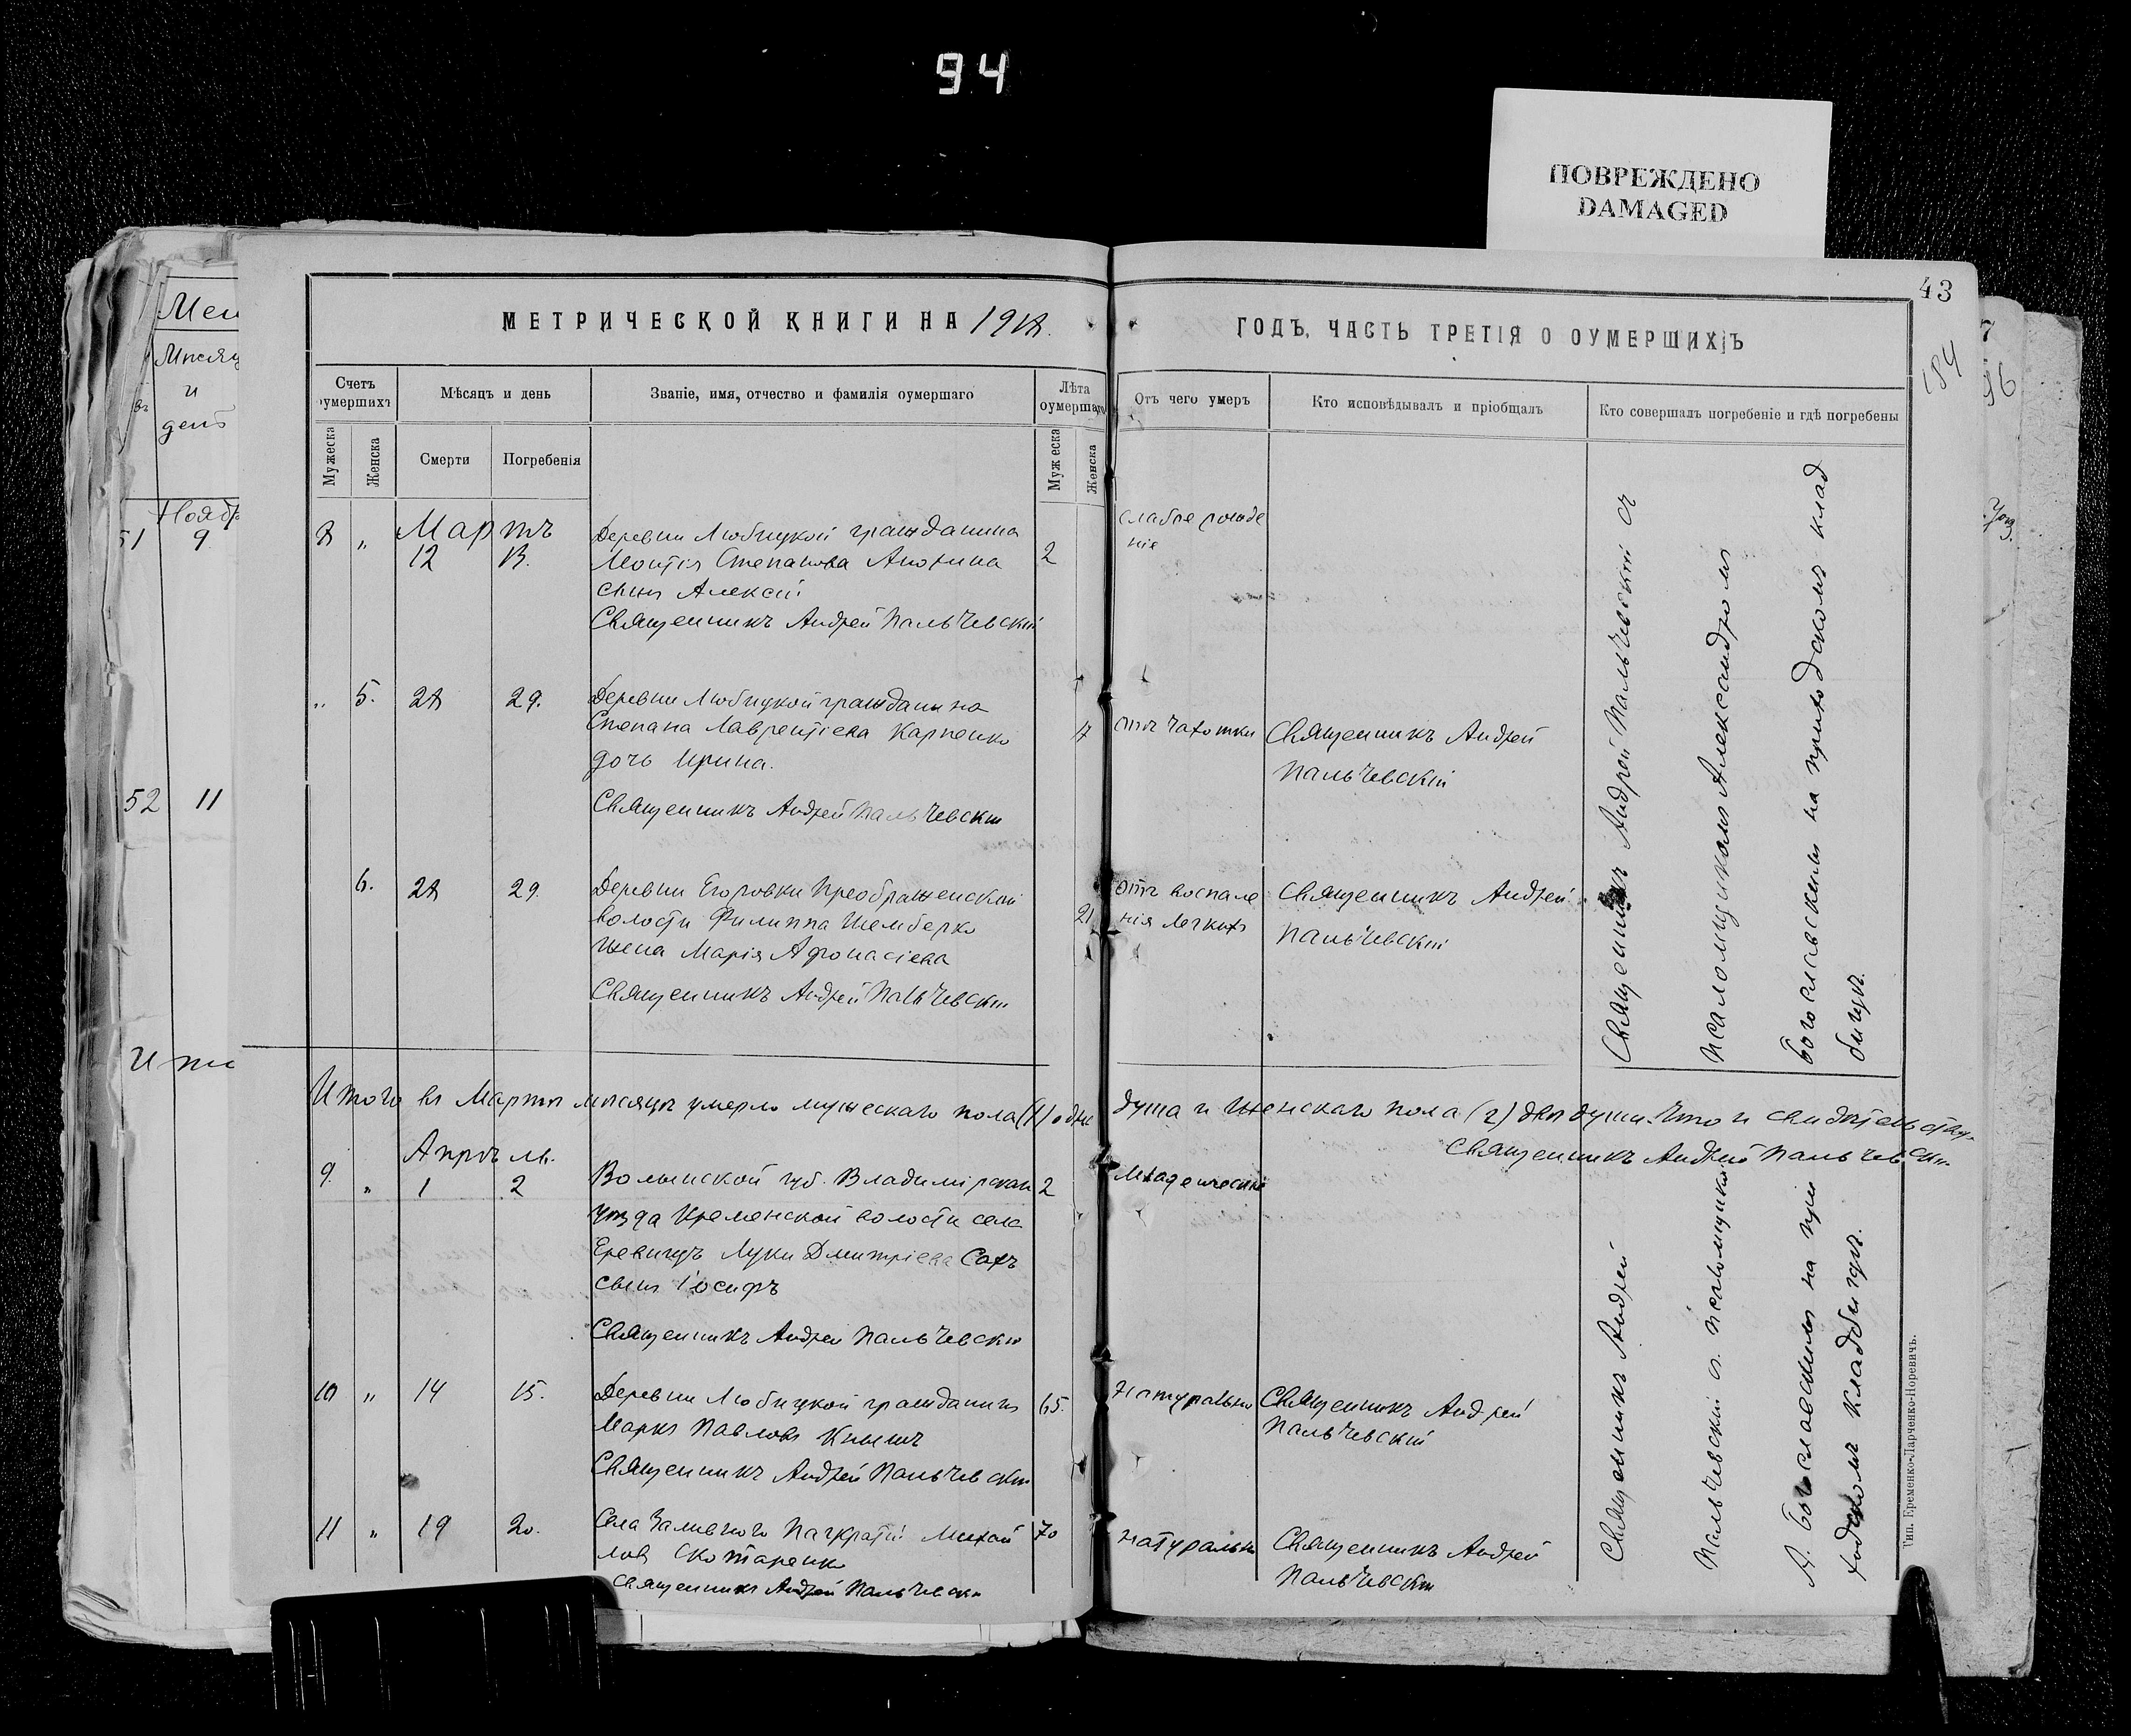 94
ПОВРЕЖДЕНО
DAMAGED
43
184
МЕТРИЧЕСКОЙ КНИГИ НА 1918.
ГОДЪ, ЧАСТЬ ТРЕТІЯ О ОУМЕРШИХЪ
Счетъ оумершихъ
Мѣсяцъ и день
Званіе, имя, отчество и фамилія оумершаго
Лѣта оумершаго
Отъ чего умеръ
Кто исповѣдывалъ и пріобщалъ
Кто совершалъ погребеніе и гдѣ погребены
Мужеска
Женска
Смерти
Погребенія
Мужеска
Женска
Мартъ
8 " 12 13.
Деревни Любицкой гражданина
Степанова
сынъ Алексій
2
слабое рожде
ніе
Священникъ Андрей Пальчевскій
" 5. 28 29.
Деревни Любицкой гражданина
Степана Лаврентіева Карпенко
дочь Ирина.
17
отъ чахотки
Священникъ Андрей
Пальчевскій
Священникъ Андрей Пальчевскій
6. 28 29.
Деревни Егоровки Преображенской
волости Филиппа Шемберко
жена Марія Афонасіева
21
отъ воспале
нія легкихъ
Священникъ Андрей
Пальчевскій
Священникъ Андрей Пальчевскій
Священникъ Андрей Пальчевскій съ
псаломщикомъ Александромъ
Богославскимъ на приходскомъ клад
бищѣ.
Итого въ Мартѣ мѣсяцѣ умерло мужескаго пола (1) одна
душа и женскаго пола (2) двѣ души. Что и свидѣтельствую
Священникъ Андрей Пальчевскій
Апрѣль.
9. " 1 2
Волынской губ. Владимірскаго
уѣзда Кременской волости села
Луки Дмитріева
сынъ Іосифъ
2
Младенческій
Священникъ Андрей Пальчевскій
10 " 14 15.
Деревни Любицкой гражданинъ
Маркъ Павловъ Кнышъ
65.
Натурально
Священникъ Андрей
Пальчевскій
Священникъ Андрей Пальчевскій
11 " 19 20.
Села Заливного Панкратій Михай
ловъ Скотаренко
70
натурально
Священникъ Андрей
Пальчевскій
Священникъ Андрей Пальчевскій
Священникъ Андрей
Пальчевскій съ псаломщикомъ
А. Богославскимъ на при
ходскомъ кладбищѣ.
Тип. Еременко-Ларченко-Норевичъ.
Мѣсяц
и
день
Ноябр
51 9
52 11